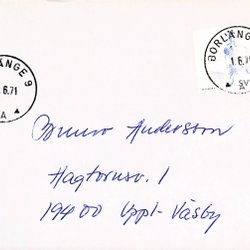 ÄNGE 9
.6.71
A
BORLÄNGE
1.6.71
SV
A
Bruno Andersson
Hagtornsv. 1
194 00 Uppl-Väsby